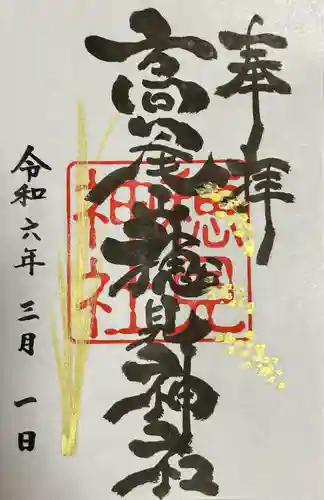 奉拝
高尾穂見神社
穂見
神社
令和六年三月一日